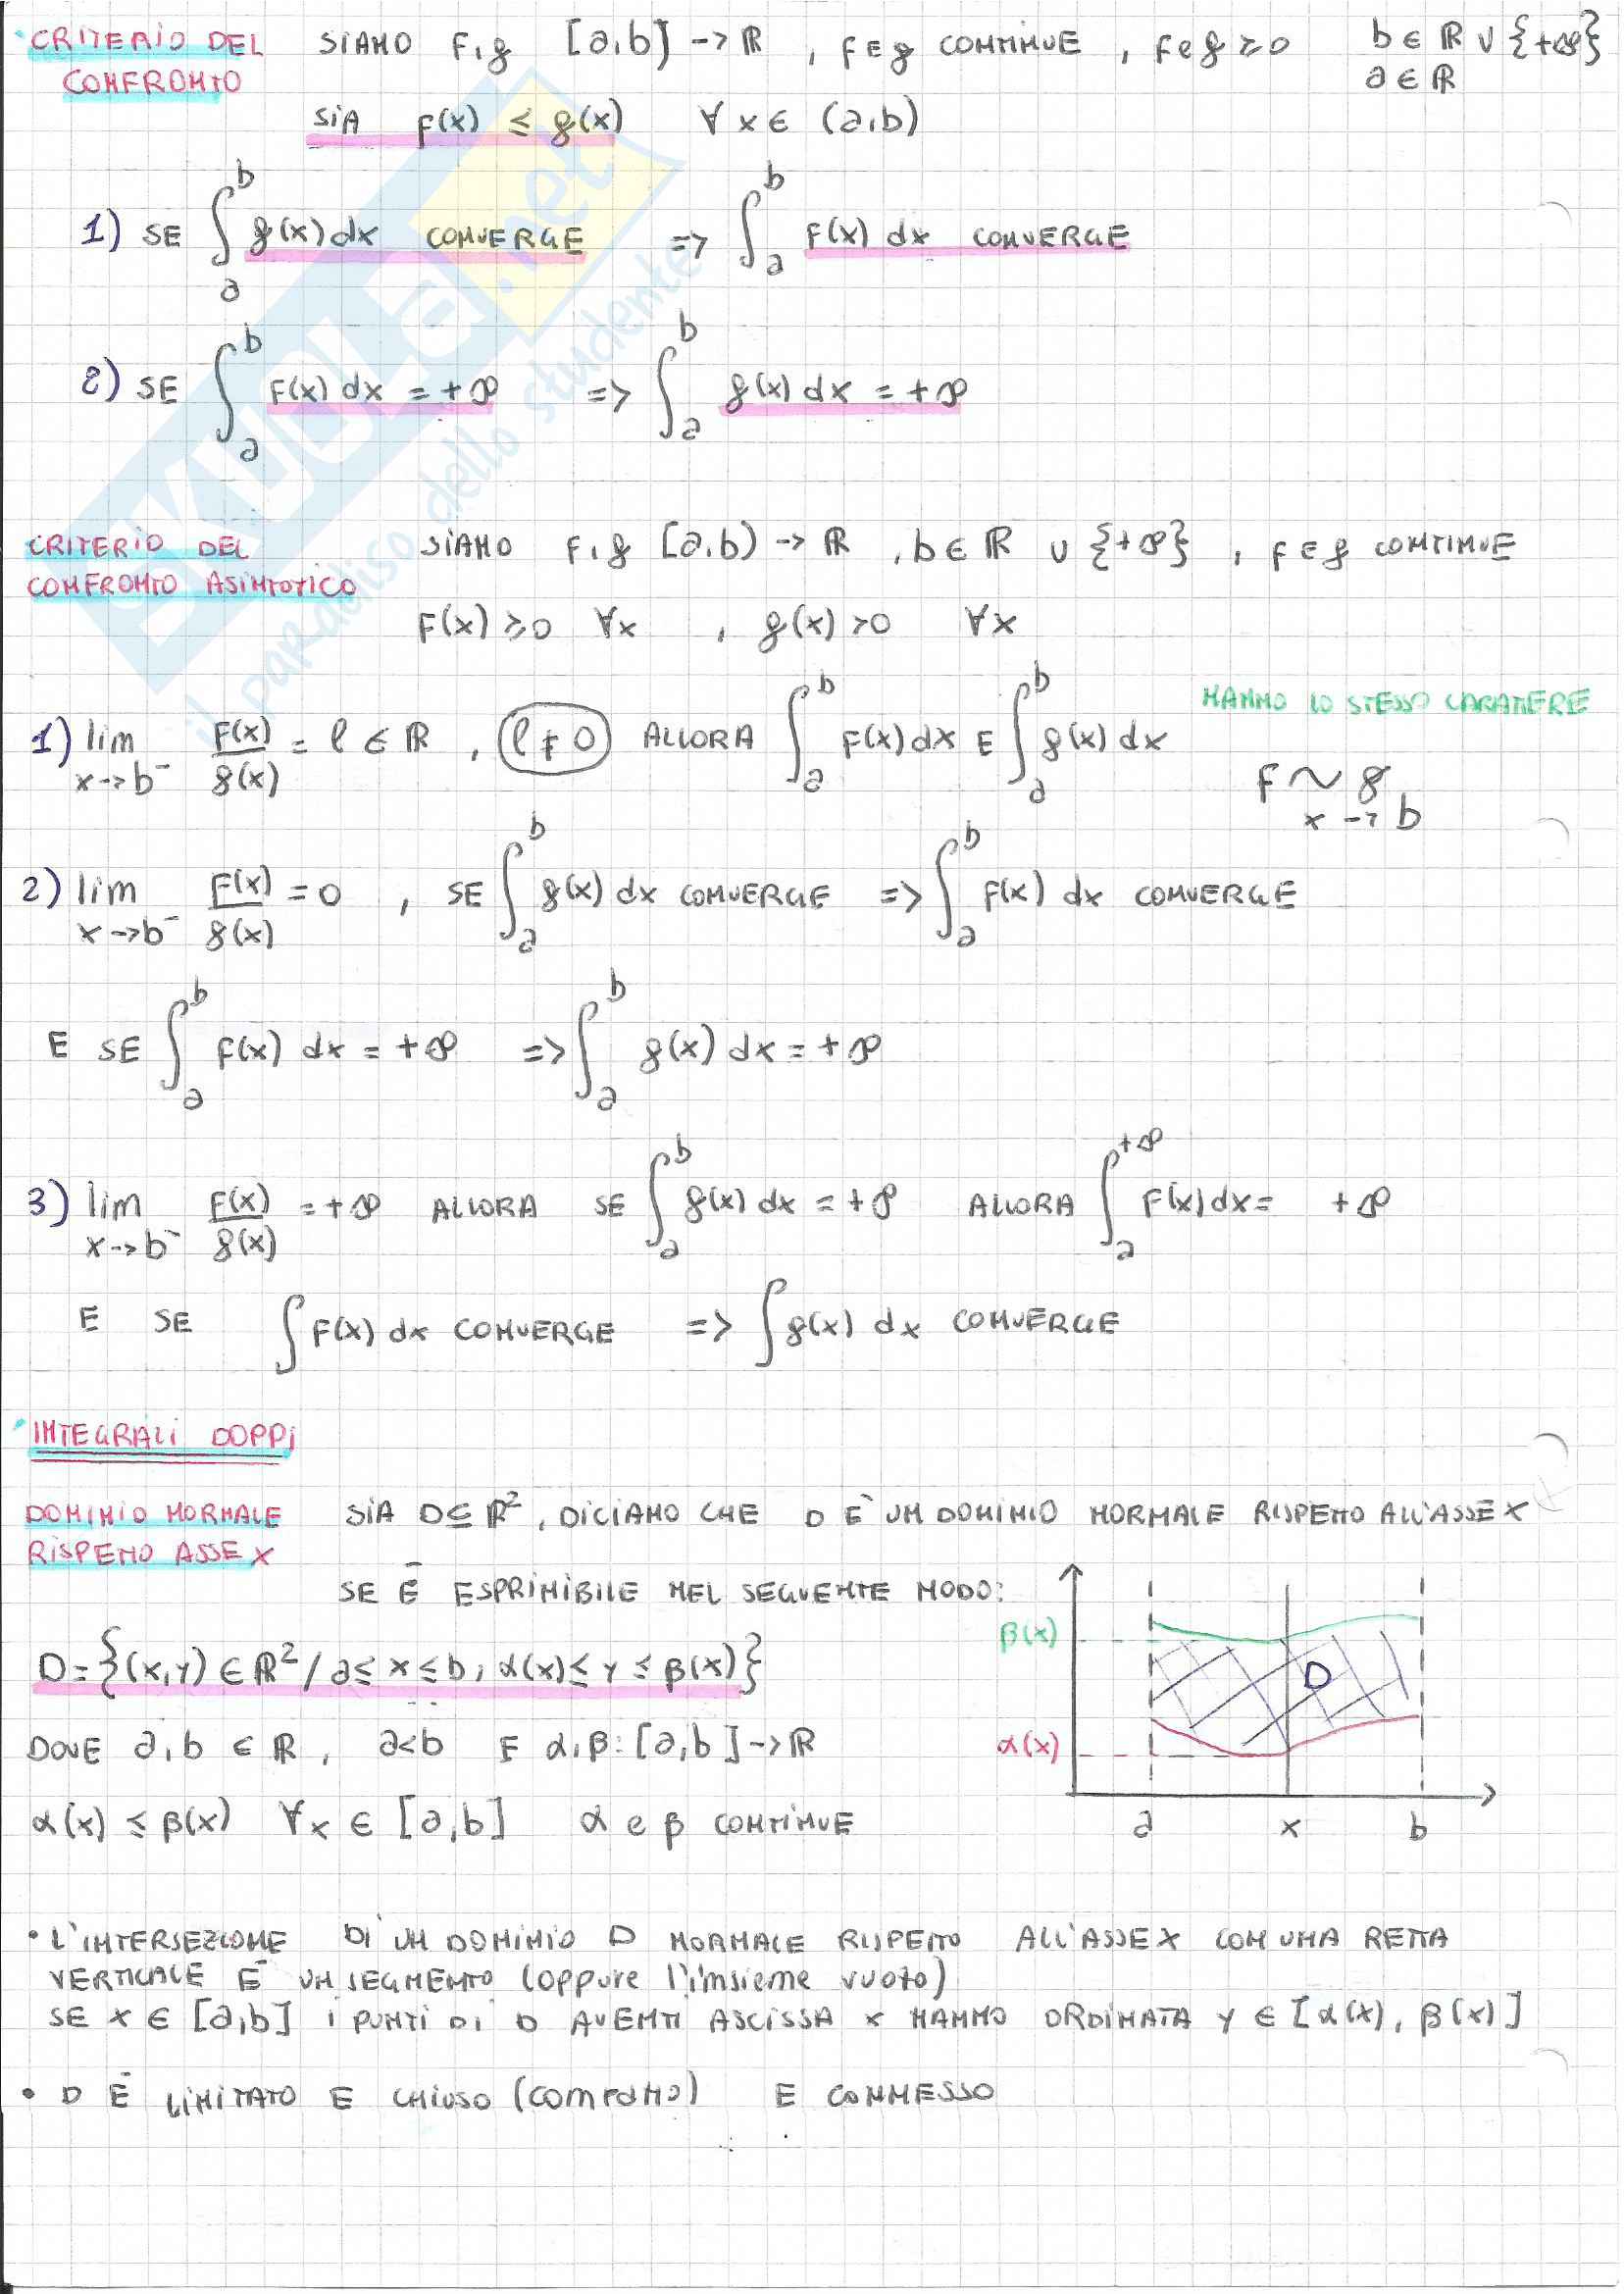 CRITERIO DEL CONFRONTO SIANO F,g [a,b] -> ℝ , F E g CONTINUE , F e g ≥ 0 b ∈ ℝ ∪ {+∞}
a ∈ ℝ
SIA F(x) ≤ g(x) ∀ x ∈ (a,b)
1) SE ∫_a^b g(x) dx CONVERGE => ∫_a^b F(x) dx CONVERGE
2) SE ∫_a^b F(x) dx = +∞ => ∫_a^b g(x) dx = +∞
CRITERIO DEL CONFRONTO ASINTOTICO SIANO F,g [a,b) -> ℝ , b ∈ ℝ ∪ {+∞} , F E g CONTINUE
F(x) ≥ 0 ∀x , g(x) > 0 ∀x
1) lim x->b⁻ F(x)/g(x) = l ∈ ℝ , l ≠ 0 ALLORA ∫_a^b F(x) dx E ∫_a^b g(x) dx HANNO LO STESSO CARATTERE
F ~ g x -> b
2) lim x->b⁻ F(x)/g(x) = 0 , SE ∫_a^b g(x) dx CONVERGE => ∫_a^b F(x) dx CONVERGE
E SE ∫_a^b F(x) dx = +∞ => ∫_a^b g(x) dx = +∞
3) lim x->b⁻ F(x)/g(x) = +∞ ALLORA SE ∫_a^b g(x) dx = +∞ ALLORA ∫_a^+∞ F(x) dx = +∞
E SE ∫ F(x) dx CONVERGE => ∫ g(x) dx CONVERGE
INTEGRALI DOPPI
DOMINIO NORMALE RISPETTO ASSE X SIA D ⊆ ℝ², DICIAMO CHE D È UN DOMINIO NORMALE RISPETTO ALL'ASSE X
SE È ESPRIMIBILE NEL SEGUENTE MODO:
D = {(x,y) ∈ ℝ² / a ≤ x ≤ b, α(x) ≤ y ≤ β(x)}
DOVE a,b ∈ ℝ, a<b E α,β: [a,b] -> ℝ
α(x) ≤ β(x) ∀x ∈ [a,b] α e β CONTINUE
β(x)
D
α(x)
a x b
• L'INTERSEZIONE DI UN DOMINIO D NORMALE RISPETTO ALL'ASSE X CON UNA RETTA
VERTICALE È UN SEGMENTO (oppure l'insieme vuoto)
SE X ∈ [a,b] i PUNTI DI D AVENTI ASCISSA X HANNO ORDINATA Y ∈ [α(x), β(x)]
• D È LIMITATO E CHIUSO (COMPATTO) E CONNESSO
SKUOLA.net
il paradiso dello studente